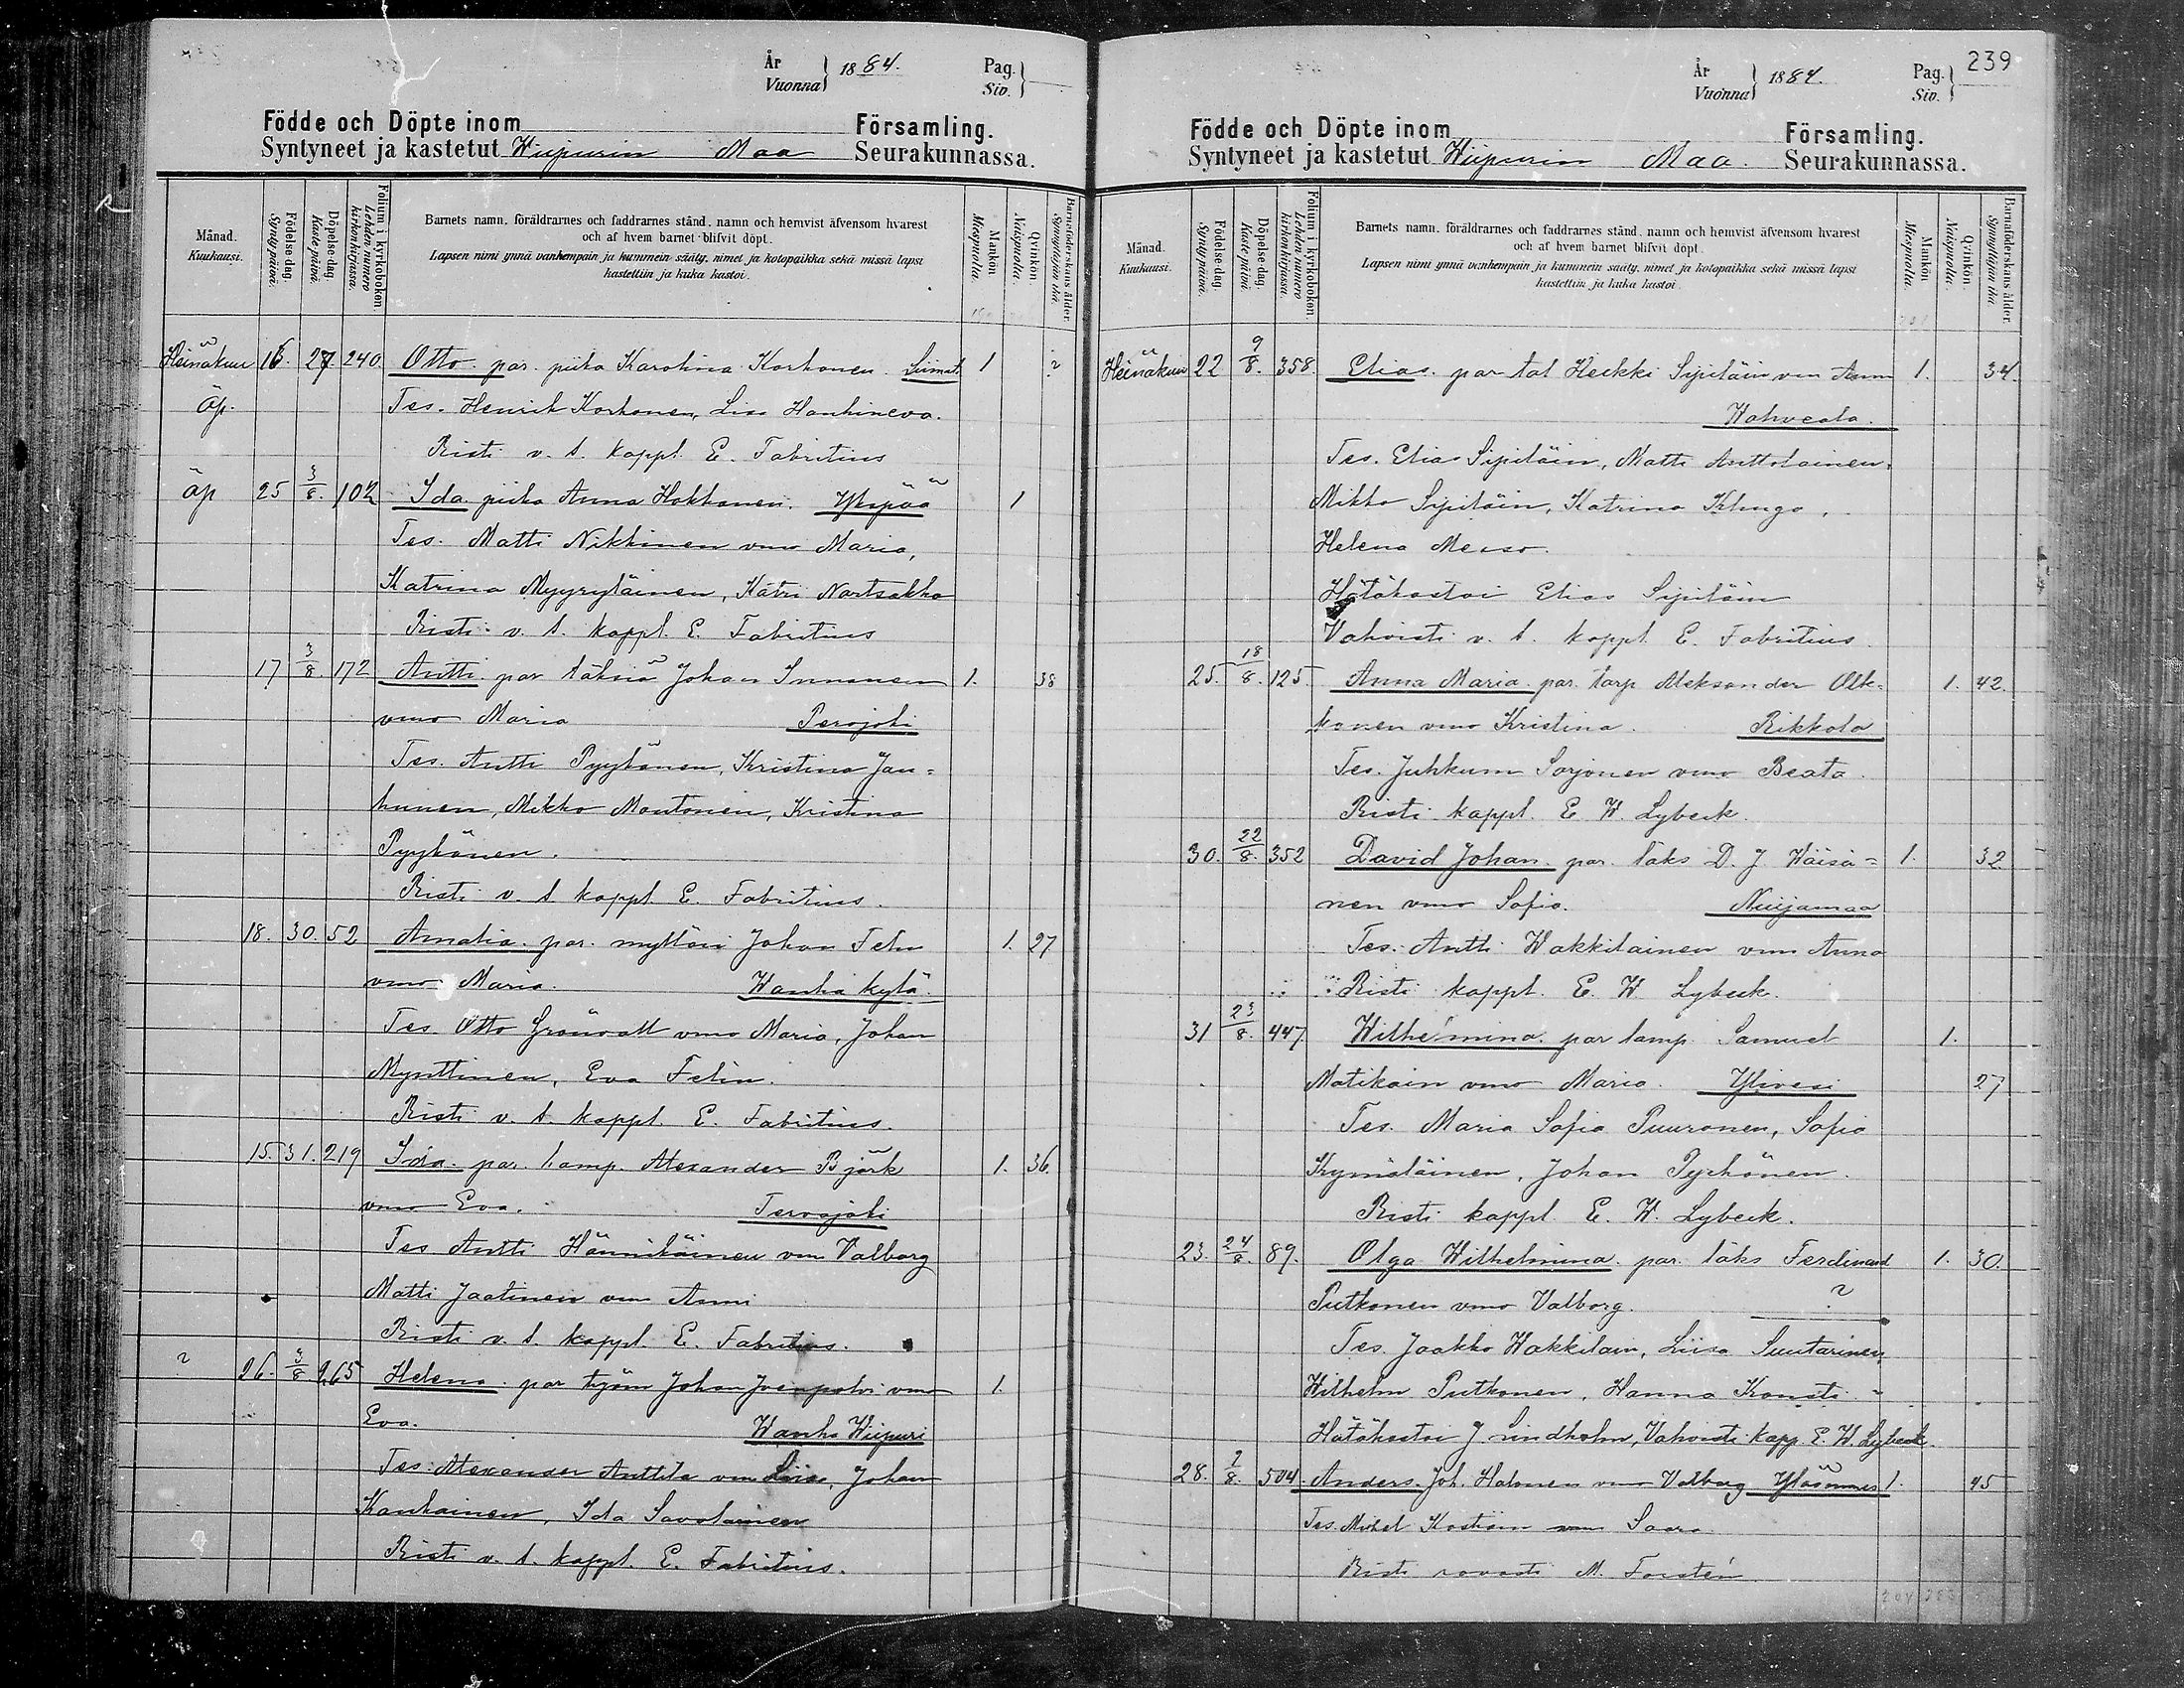 År
Vuonna } 1884.
Pag.
Siv. }
Födde och Döpte inom Församling.
Syntyneet ja kastetut Wiipurin Maa Seurakunnassa.
Månad.
Kuukausi.
Födelse-dag.
Syntypäivä.
Döpelse-dag.
Kastepäivä.
Folium i kyrkoboken.
Lehden numero
kirkonkirjassa.
Barnets namn, föräldrarnes och faddrarnes stånd, namn och hemvist äfvensom hvarest
och af hvem barnet blifvit döpt.
Lapsen nimi ynnä vanhempain ja kummein sääty, nimet ja kotopaikka sekä missä lapsi
kastettiin ja kuka kastoi.
Mankön.
Miespuolia.
Qvinkön.
Naispuolia.
Barnaföderskans ålder.
Synnyttäjän ikä.
Heinäkuu 16. 27. 240. Otto. par. piika Karolina Korhonen. Siimat 1 ?
äp. Tes. Henrik Korhonen, Lisa Hanhineva.
Risti v. t. kappl. E. Fabritius
äp 25 3/8. 102 Ida piika Anna Hokkanen. Ykspää 1
Tes. Matti Nikkinen vmo Maria,
Katrina Myyryläinen, Katri Nartsakka
Risti v. t. kappl. E. Fabritius
17 3/8 172 Antti par Johan Innanen 1. 38
vmo Maria Perojoki
Tes. Antti Pyykönen, Kristina Jan=
hunen, Mikko Mantonen, Kristina
Pyykönen.
Risti v. t kappl. E. Fabritius.
18. 30. 52 Amalia. par. Johan Felin 1. 27
vmo Maria. Wanha kylä.
Tes. Otto Grönvall vmo Maria, Johan
Mynttinen, Eva Felin.
Risti v. t. kappl. E. Fabritius.
15. 31. 219 Ida. par. lamp. Alexander Björk 1. 36.
vmo Eva. Tervajoki
Tes Antti Hännikäinen vm Valborg
Matti Jaatinen vm Anni
Risti v. t. kappl. E. Fabritius.
? 26. 3/8 265 Helena. par työm Johan vmo 1.
Eva. Wanha Wiipuri
Tes. Alexander Anttila vm Liisa, Johan
Kauhainen, Ida Savolainen
Risti v. t. kappl. E. Fabritius.
239
År
Vuonna } 1884.
Pag.
Siv. }
Födde och Döpte inom Församling.
Syntyneet ja kastetut Wiipurin Maa. Seurakunnassa.
Månad.
Kuukausi.
Födelse-dag.
Syntypäivä.
Döpelse-dag.
Kastepäivä.
Folium i kyrkoboken.
Lehden numero
kirkonkirjassa.
Barnets namn, föräldrarnes och faddrarnes stånd, namn och hemvist äfvensom hvarest
och af hvem barnet blifvit döpt.
Lapsen nimi ynnä vanhempain ja kummein sääty, nimet ja kotopaikka sekä missä lapsi
kastettiin ja kuka kastoi.
Mankön.
Miespuolia.
Qvinkön.
Naispuolia.
Barnaföderskans ålder.
Synnyttäjän ikä.
Heinäkuu 22 9/8. 358. Elias. par tal Heikki Sipiläin vm Anna 1. 34.
Wahveala.
Tes. Elias Sipiläin, Matti Anttolainen,
Mikko Sipiläin, Katrina,
Helena
Hätäkastoi Elias Sipiläin
Vahvisti v. t. kappl. E. Fabritius.
25. 18/8. 125. Anna Maria. par. torp Aleksander Olk= 1. 42.
konen vmo Kristina. Rikkola
Tes. Juhkum Sorjonen vmo Beata.
Risti kappl. E. W. Lybeck.
30. 22/8. 352 David Johan. par. laks D. J. Häisä= 1. 32
nen vmo Sofia. Nuijamaa
Tes. Antti Wakkilainen vmo Anna
Risti kappl. E. W. Lybeck.
31 23/8. 447 Wilhelmina. par lamp. Samuel 1.
Matikain vmo Maria. Ylivesi 27
Tes. Maria Sofia Puuronen, Sofia
Kymäläinen, Johan Pyrhönen.
Risti kappl. E. W. Lybeck.
23. 24/8. 89. Olga Wilhelmina. par. laks Ferdinand 1. 30.
Putkonen vmo Valborg. ?
Tes. Jaakko Wakkilain, Liisa Suutarinen,
Wilhelm Putkonen, Hanna Konsti.
Hätäkastoi J. Lindholm, Vahvisti kapp. E. W. Lybeck.
28. 7/8. 504. Anders. Joh. Halonen vmo Valborg 1. 45
Tes. Mikel Kostiain vmo Saara.
Risti rovasti M. Forstén